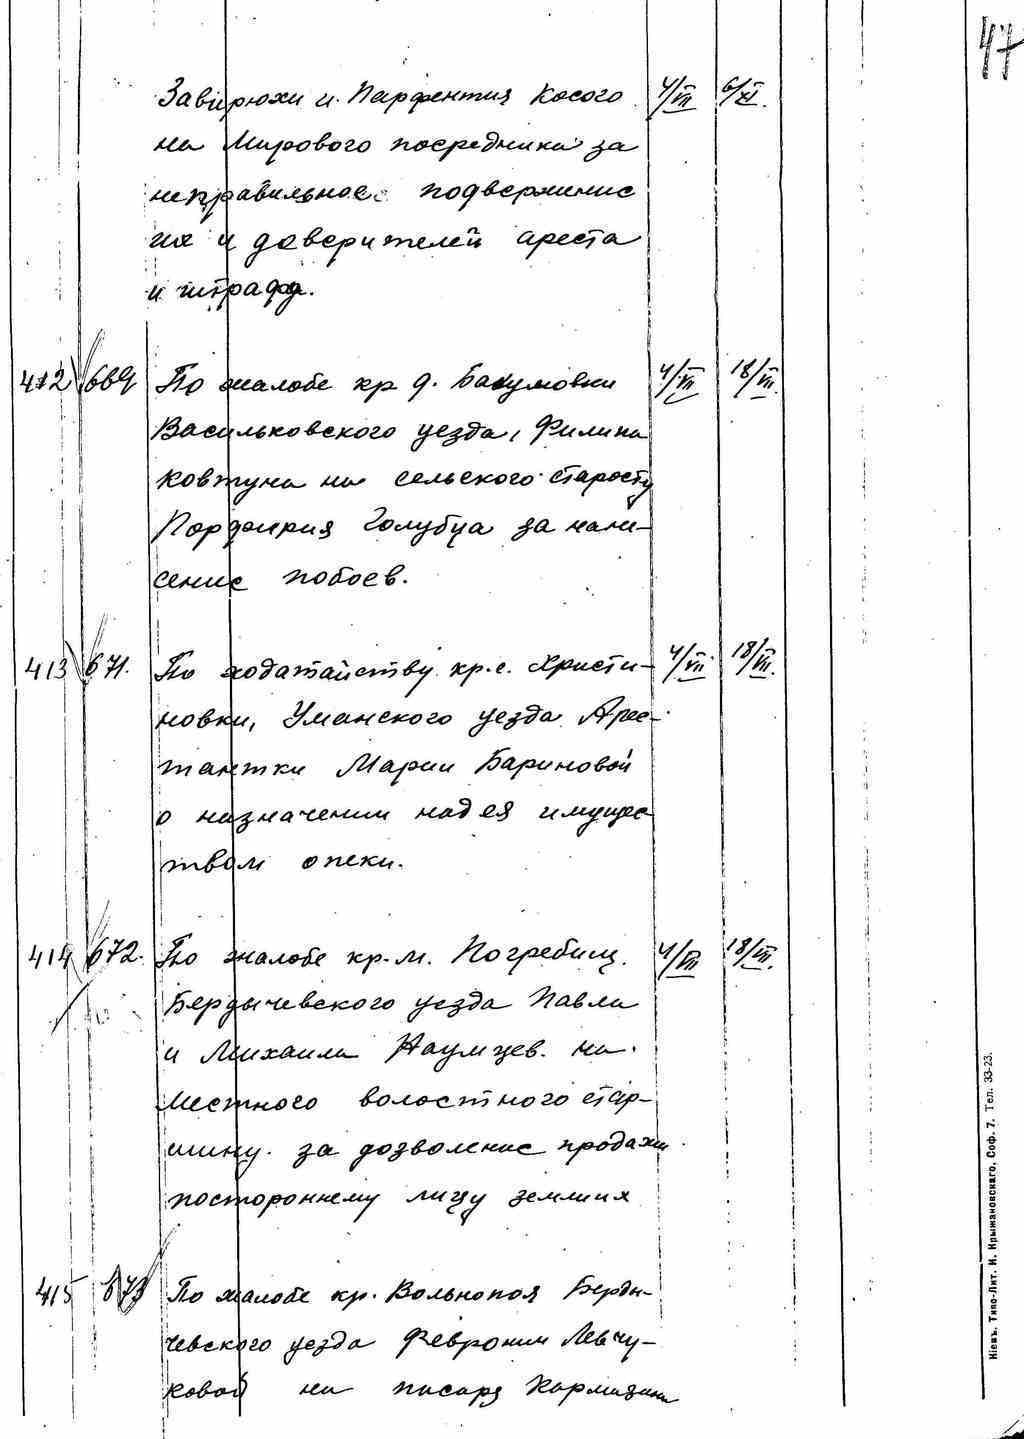 47
Завирюхи и Парфентия Косого 4/VII 6/XI.
на Мирового посредника за
неправильное подвержение
их и доверителей ареста
и штрафа.
412 669 По жалобе кр д. Бакумовки 4/VII 18/VII.
Васильковского уезда, Филипа
Ковтуна на сельского старосту
Порфирия Голубца за нане-
сение побоев.
413 671. По ходатайству кр. с. Христи- 4/VII 18/VII.
новки, Уманского уезда Арес-
тантки Марии Бариновой
о назначении над ея имущес
твом опеки.
414 672. По жалобе кр. м. Погребищ. 4/VII 18/VII.
Бердычевского уезда Павла
и Михаила Наумцев. на
Местного волостного стар-
шину. за дозволение продажи
постороннему лицу земли их
415 673 По жалобе кр. Вольнополя Берды-
чевского уезда Февронии Левчу-
ковой на писаря Кармазина
Кіевъ. Типо-Лит. И. Крыжановскаго, Соф. 7. Тел. 33-23.